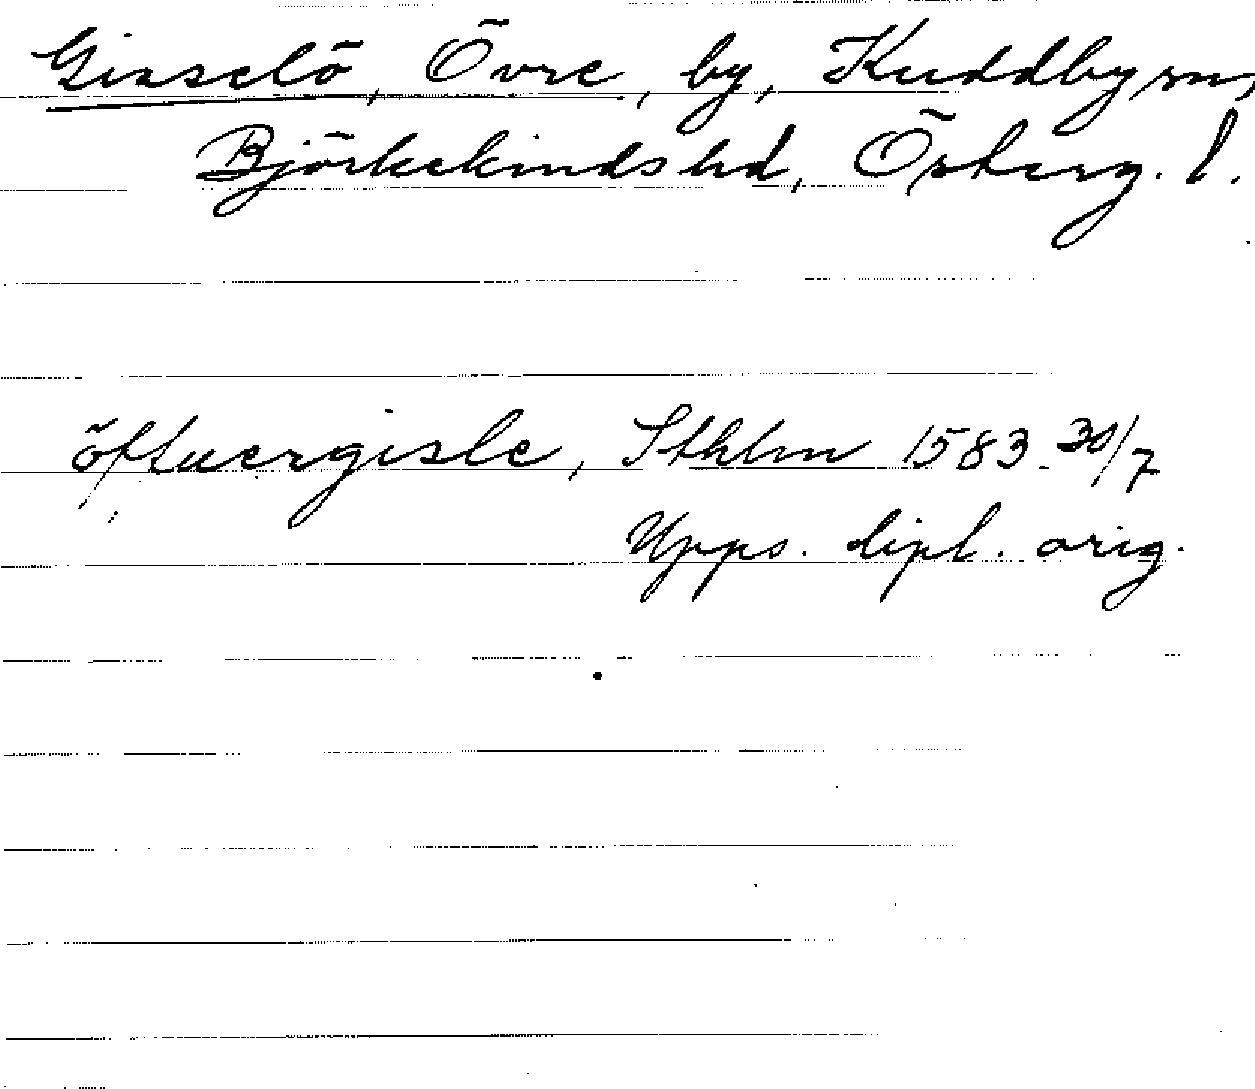 Gisselö, Övre, by, Kuddby sn,
Björkekinds hd, Österg. l.
öftuergisle, Sthlm 1583 30/7
Upps. dipl. orig.